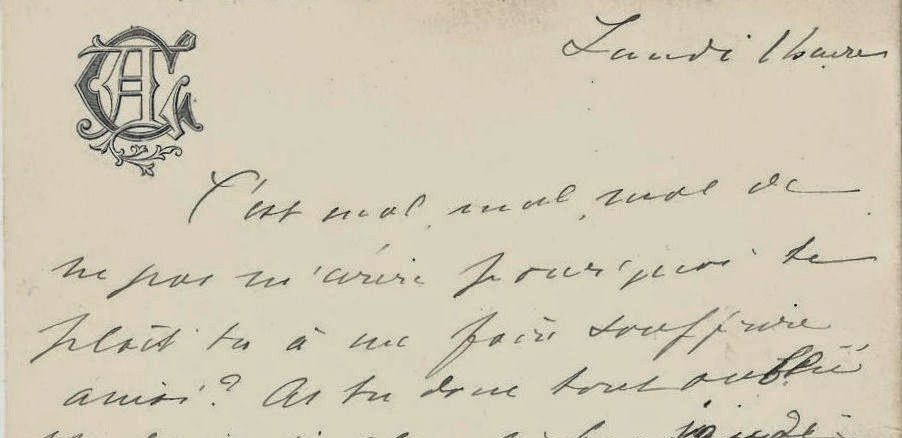 Lundi 1 heure
C'est mal, mal, mal de
ne pas m'écrire pourquoi te
plaît tu à me faire souffrire
ainsi? As tu donc tout oublié